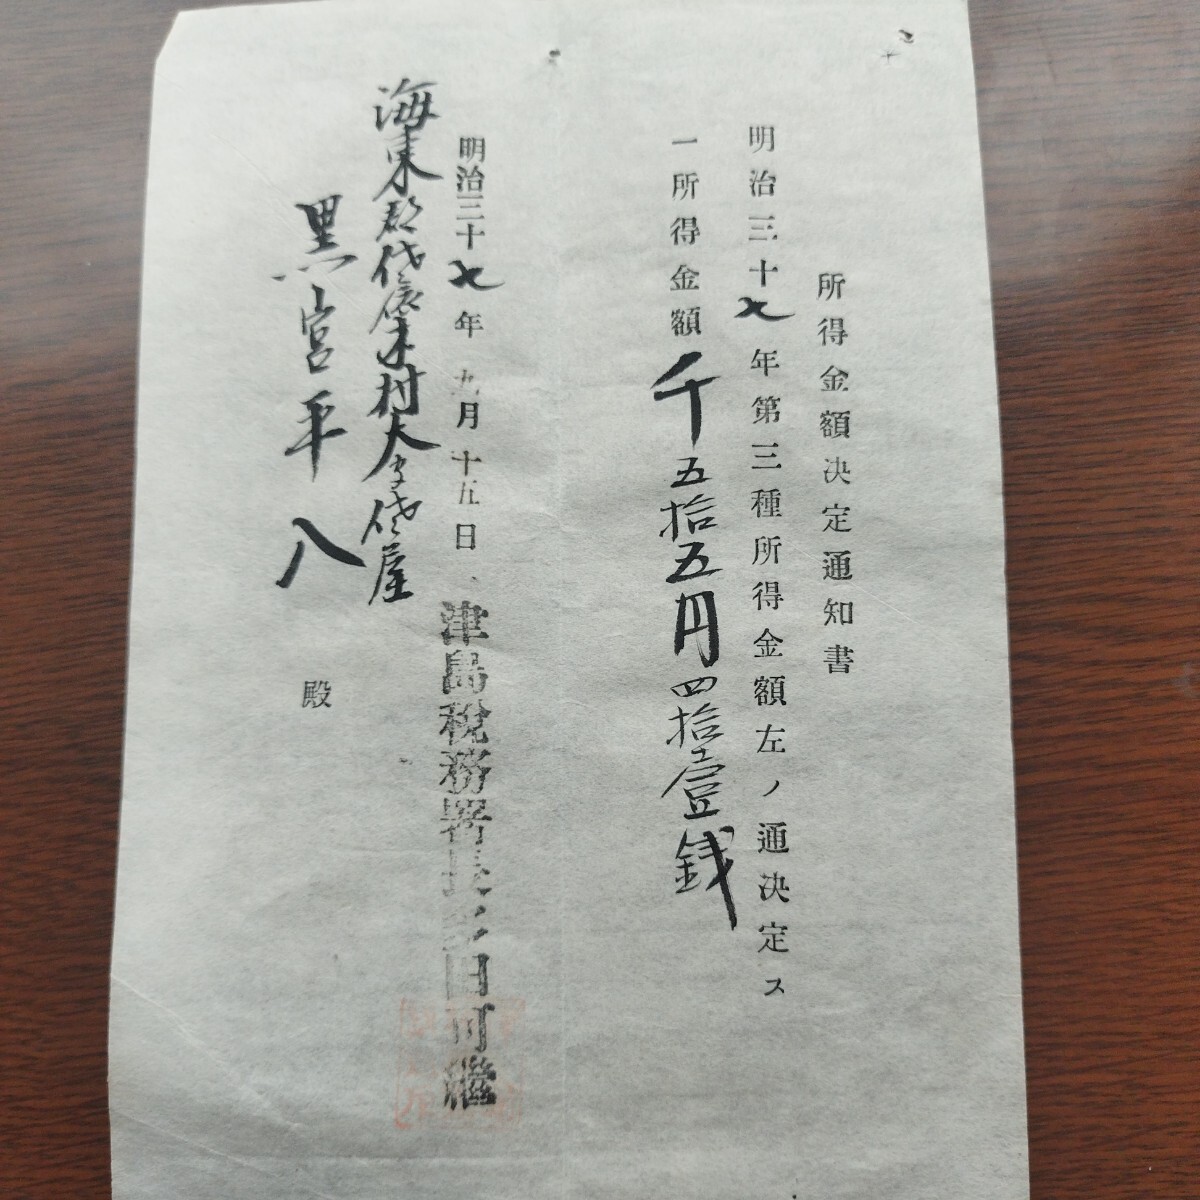 所得金額決定通知書
明治三十七年第三種所得金額左ノ通決定ス
一所得金額千五拾五円四拾壹銭
明治三十七年九月十五日
津島税務署長 田可繼
海東郡佐織村大字佐屋
黒宮平八殿